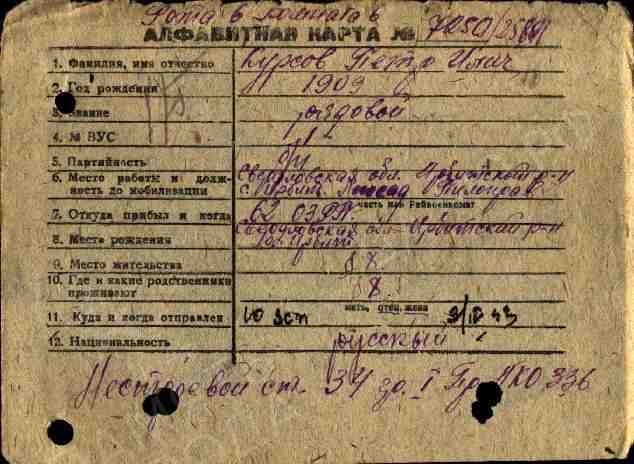 Рота 6 Комната 6
АЛФАВИТНАЯ КАРТА №
1. Фамилия, имя отчество Курсов Петр Ильич
2. Год рождения 1909
3. Звание рядовой
4. № ВУС 1
5. Партийность б/п
6. Место работы и долж- Свердловская обл. Ирбитский р-н
ность до мобилизации с.
7. Откуда прибыл и когда 62 ОЗСП
часть или Райвоенкомат
8. Место рождения Свердловская обл. Ирбитский р-н
9. Место жительства
10. Где и какие родственники
проживают
мать, отец, жена
11. Куда и когда отправлен 10 зсп 43
12. Национальность русский
Нестроевой ст. 34 гр. I Пр. НКО 336